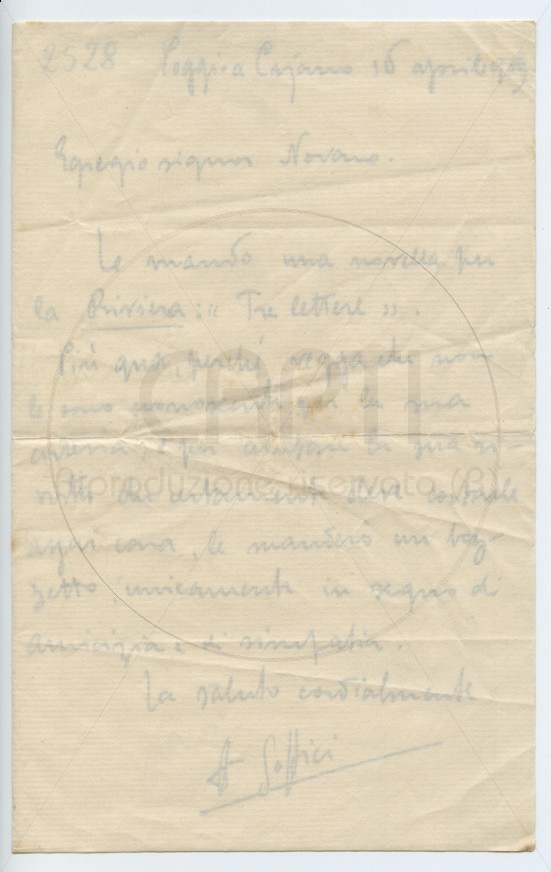 2528 Poggio a Cajano 16 aprile 909
Egregio signor Novaro.
Le mando una novella per
la Riviera: « Tre lettere ».
Più qua, perché vegga che non
le sono sconoscente per la sua
e per la sua ri-
vista che certamente deve costarle
assai cara, le manderò un boz-
zetto unicamente in segno di
amicizia e di simpatia.
La saluto cordialmente
A Soffici
CSACTI
riproduzione riservata (R)